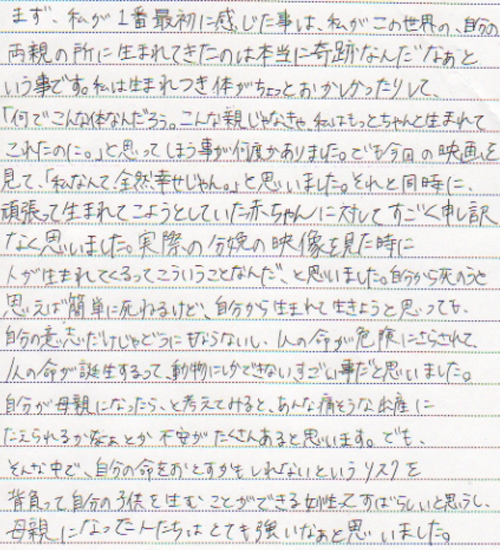 まず、私が1番最初に感じた事は、私がこの世界の、自分の
両親の所に生まれてきたのは本当に奇跡なんだなあと
いう事です。私は生まれつき体がちょっとおかしかったりして、
「何でこんな体なんだろう。こんな親じゃなきゃ、私はもっとちゃんと生まれて
これたのに。」と思ってしまう事が何度かありました。でも今回の映画を
見て、「私なんて、全然幸せじゃん。」と思いました。それと同時に、
頑張って生まれてこようとしていた赤ちゃんに対してすごく申し訳
なく思いました。実際の分娩の映像を見た時に
人が生まれてくるってこういうことなんだ、と思いました。自分から死のうと
思えば簡単に死ねるけど、自分から生まれて生きようと思っても、
自分の意志だけじゃどうにもならないし、1人の命が危険にさらされて、
1人の命が誕生するって、動物にしかできないすごい事だと思いました。
自分が母親になったら、と考えてみると、あんな痛そうな出産に
たえられるかなぁとか不安がたくさんあると思います。でも、
そんな中で、自分の命をおとすかもしれないというリスクを
背負って自分の子供を生むことができる女性ってすばらしいと思うし、
母親になった人たちはとても強いなぁと思いました。